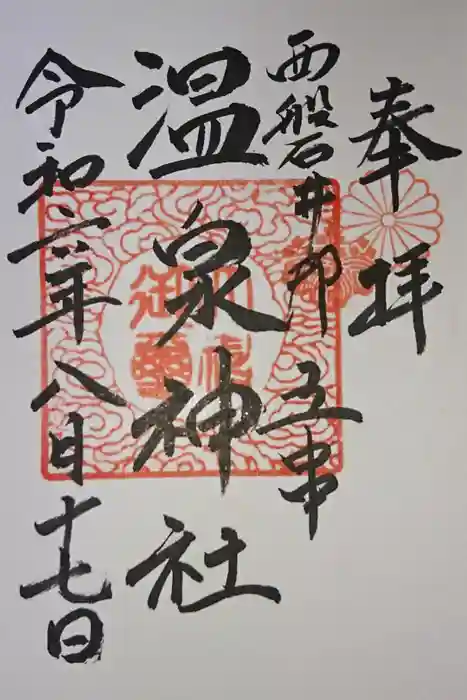 奉拝
西磐井郡 五串
温泉神社
令和六年八月十七日